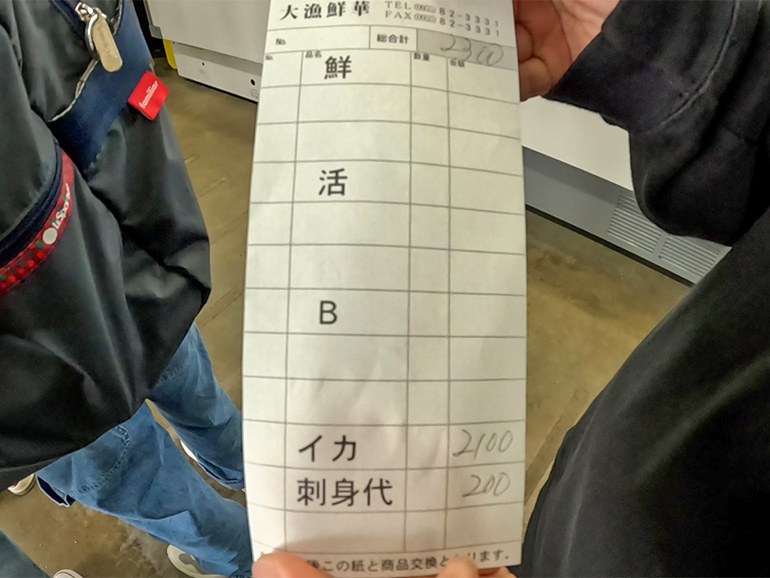 大漁鮮華 TEL 82-3331
FAX 82-3331
No. 総合計 2300
No. 品名 数量 金額
鮮
活
B
イカ 2100
刺身代 200
後この紙と商品交換となります。
familiar
LeSpo